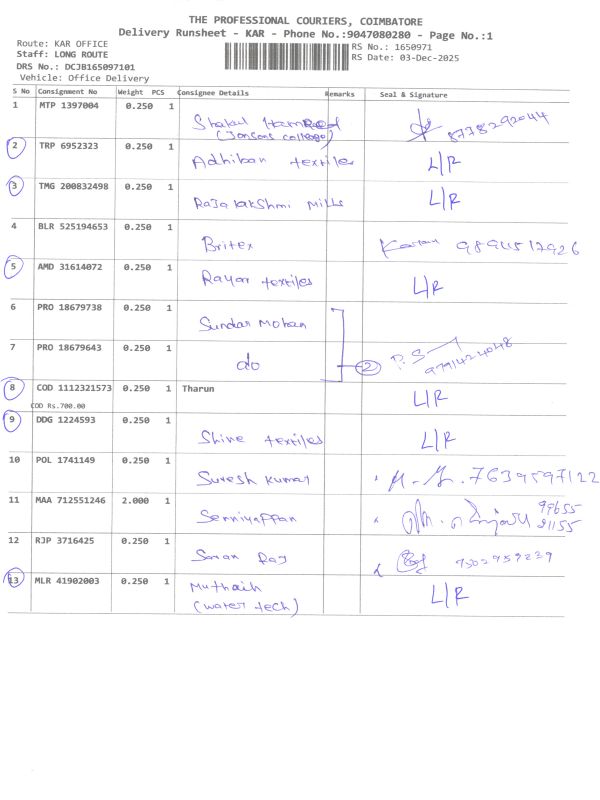 THE PROFESSIONAL COURIERS, COIMBATORE
Delivery Runsheet - KAR - Phone No.:9047080280 - Page No.:1
Route: KAR OFFICE
Staff: LONG ROUTE
DRS No.: DCJB165097101
Vehicle: Office Delivery
RS No.: 1650971
RS Date: 03-Dec-2025
S No Consignment No Weight PCS Consignee Details Remarks Seal & Signature
1 MTP 1397004 0.250 1
(Jansons college) 8778292044
2 TRP 6952323 0.250 1 Adhiban textiles L/R
3 TMG 200832498 0.250 1 Rajalakshmi Mills L/R
4 BLR 525194653 0.250 1 Britex
5 AMD 31614072 0.250 1 Rayar textiles L/R
6 PRO 18679738 0.250 1 Sundar Mohan
7 PRO 18679643 0.250 1 do 2 P.S 9791424048
8 COD 1112321573 0.250 1 Tharun L/R
COD Rs.700.00
9 DDG 1224593 0.250 1 Shine textiles L/R
10 POL 1741149 0.250 1 Suresh Kumar 7639597122
11 MAA 712551246 2.000 1 Senniyappan 99655
21155
12 RJP 3716425 0.250 1 Saran Raj
13 MLR 41902003 0.250 1 Muthaih L/R
(water tech)